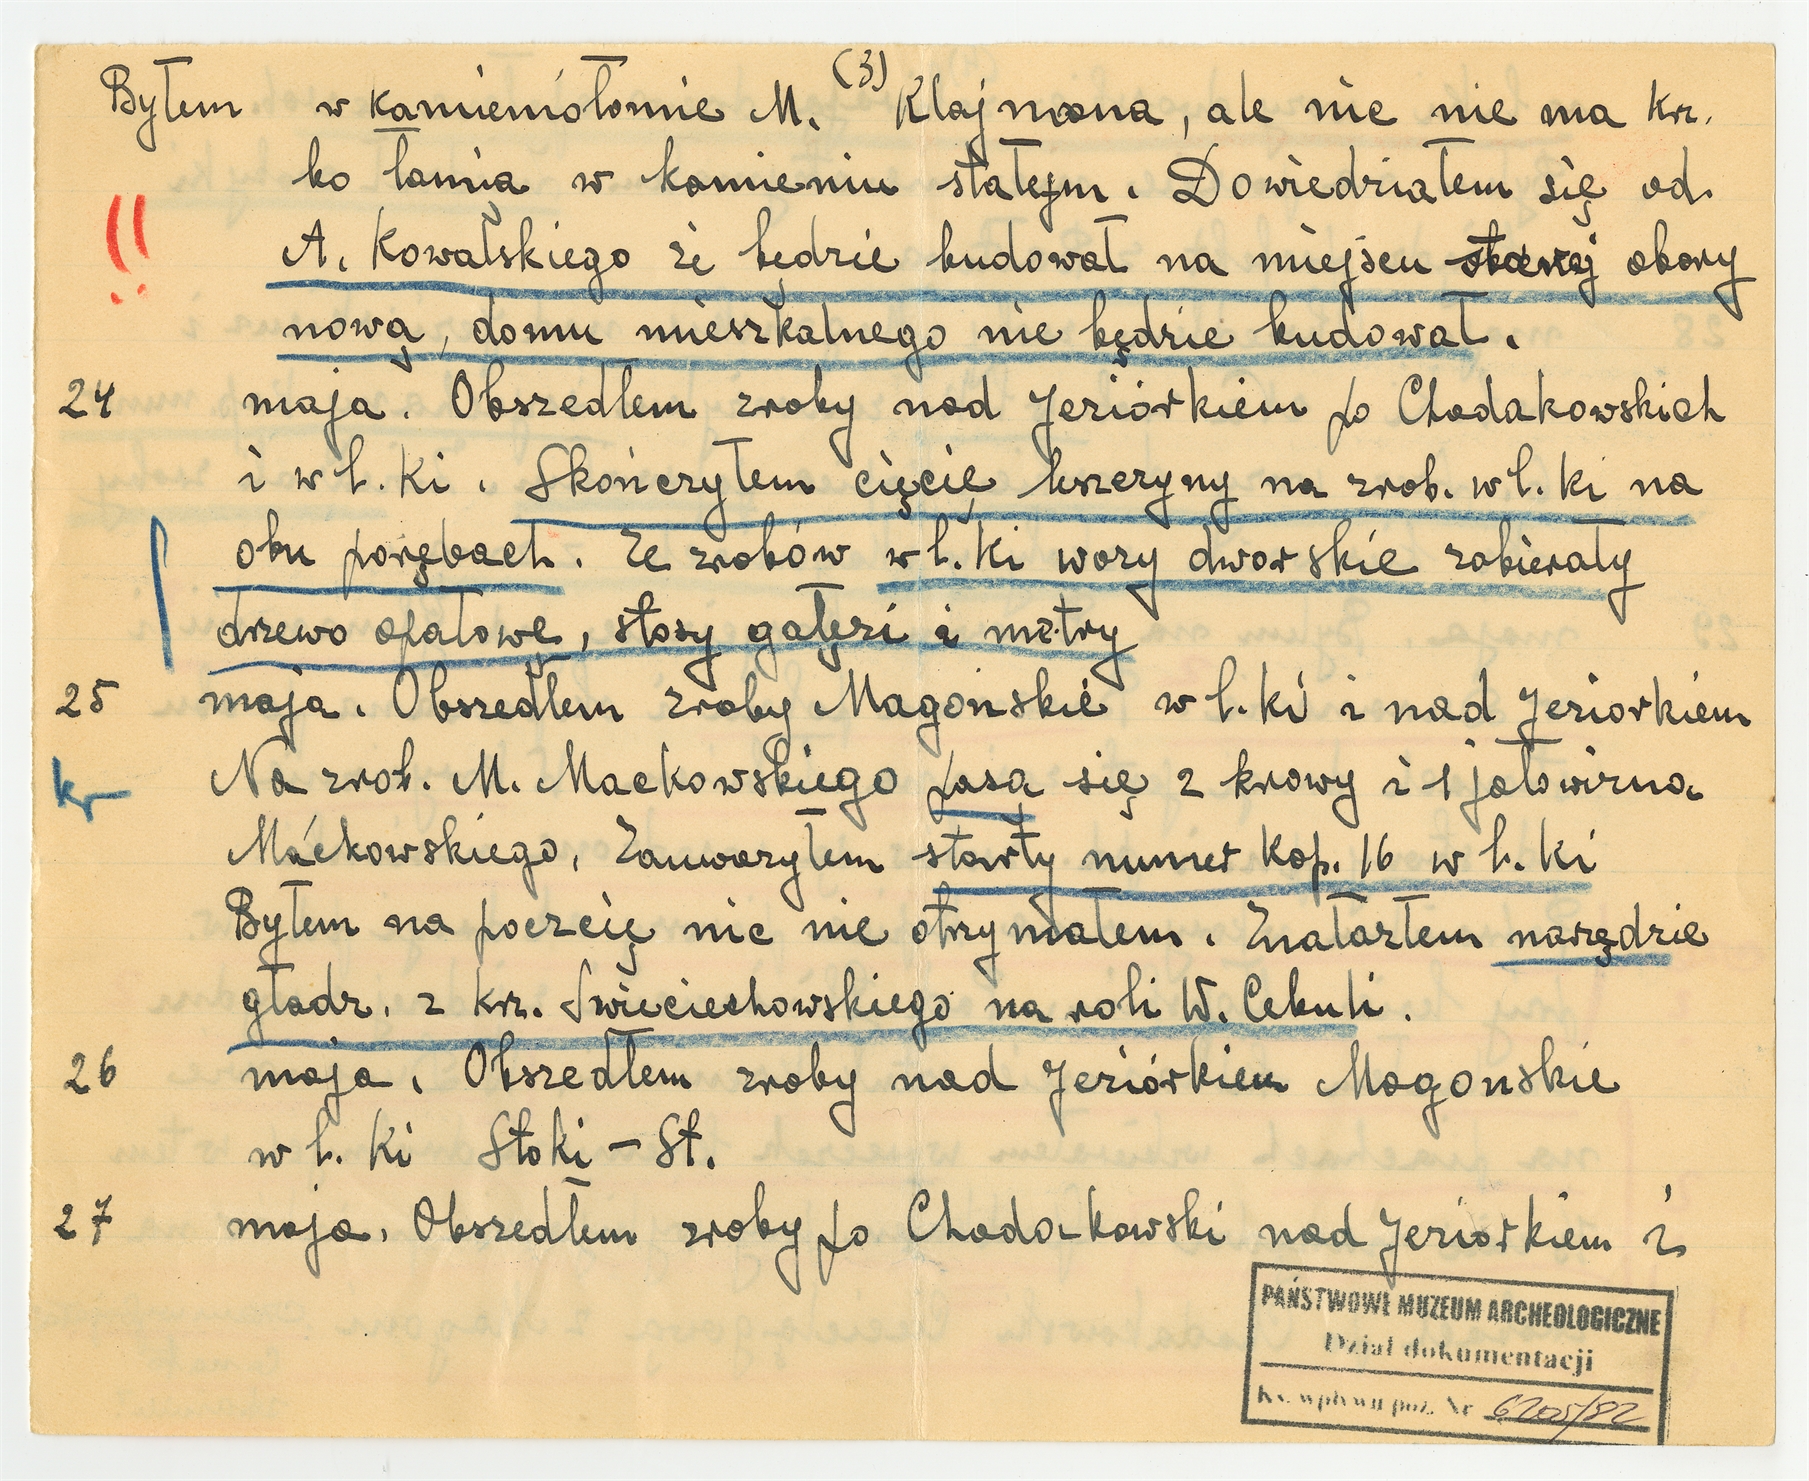 (3)
Byłem w kamieniołomie M. Klajmana, ale nic nie ma kr.
bo łamią w kamieniu stałym. Dowiedziałem się od
!! A. Kowalskiego że będzie budował na miejscu starej obory
nową, domu mieszkalnego nie będzie budował.
24 maja. Obszedłem zroby nad Jeziórkiem po Chodakowskich
i w l. Ki. Skończyłem cięcie leszczyny na zrob. w l. Ki na
obu porębach. Ze zrobów w l. Ki wozy dworskie zabierały
drzewo opałowe, stosy gałęzi i metry
25 maja. Obszedłem zroby Magońskie w l. Ki i nad Jeziorkiem
kr Na zrob. M. Mackowskiego pasą się 2 krowy i 1 jałowizna
Maćkowskiego. Zauważyłem starty numer Kop. 16 w l. Ki
Byłem na poczcie nic nie otrzymałem. Znalazłem narzędzie
gładz. z krz. Świeciechowskiego na roli W. Cebuli.
26 maja. Obszedłem zroby nad Jeziórkiem Magonskie
w l. Ki Stoki – St.
27 maja. Obszedłem zroby po Chodakowski nad Jeziorkiem i
PAŃSTWOWE MUZEUM ARCHEOLOGICZNE
Dział dokumentacji
Ks. wpływu poz. Nr 6205/82